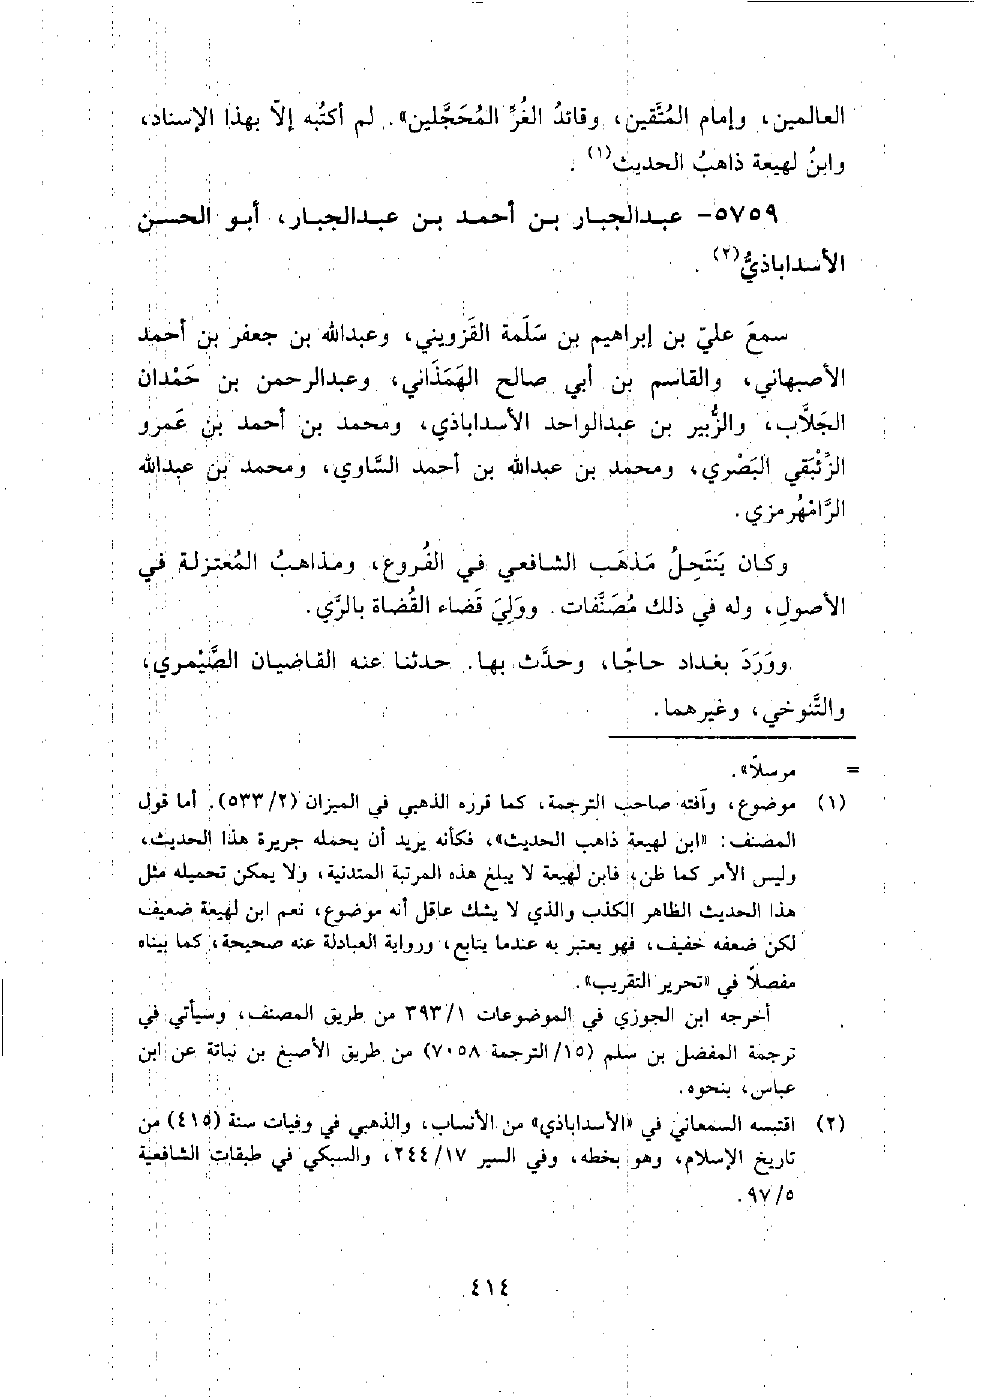 العالمين، وإمام المُتَّقين، وقائدُ الغُرِّ المُحَجَّلين». لم أكتُبه إلّا بهذا الإسناد،
وابنُ لهيعة ذاهبُ الحديث(١).
٥٧٥٩- عبدالجبار بن أحمد بن عبدالجبار، أبو الحسن
الأسداباذيُّ(٢).
سمعَ عليّ بن إبراهيم بن سَلَمة القَزويني، وعبدالله بن جعفر بن أحمد
الأصبهاني، والقاسم بن أبي صالح الهَمَذاني، وعبدالرحمن بن حَمْدان
الجَلَّاب، والزُّبير بن عبدالواحد الأسداباذي، ومحمد بن أحمد بن عَمرو
الزِّئْبَقي البَصْري، ومحمد بن عبدالله بن أحمد السَّاوي، ومحمد بن عبدالله
الرَّامْهُرمزي.
وكان يَنتَحِلُ مَذهَب الشافعي في الفُروع، ومذاهبُ المُعتزلة في
الأصولِ، وله في ذلك مُصَنَّفات. ووَلِيَ قَضاء القُضاة بالرَّي.
ووَرَدَ بغداد حاجًا، وحدَّث بها. حدثنا عنه القاضيان الصَّيْمري،
والتَّنوخي، وغيرهما.
= مرسلاً».
(١) موضوع، وآفته صاحب الترجمة، كما قرره الذهبي في الميزان (٢/ ٥٣٣). أما قول
المصنف: «ابن لهيعة ذاهب الحديث»، فكأنه يريد أن يحمله جريرة هذا الحديث،
وليس الأمر كما ظن، فابن لهيعة لا يبلغ هذه المرتبة المتدنية، ولا يمكن تحميله مثل
هذا الحديث الظاهر الكذب والذي لا يشك عاقل أنه موضوع، نعم ابن لهيعة ضعيف
لكن ضعفه خفيف، فهو يعتبر به عندما يتابع، ورواية العبادلة عنه صحيحة، كما بيناه
مفصلاً في «تحرير التقريب».
أخرجه ابن الجوزي في الموضوعات ١/ ٣٩٣ من طريق المصنف، وسيأتي في
ترجمة المفضل بن سلم (١٥/ الترجمة ٧٠٥٨) من طريق الأصبغ بن نباتة عن ابن
عباس، بنحوه.
(٢) اقتبسه السمعاني في «الأسداباذي» من الأنساب، والذهبي في وفيات سنة (٤١٥) من
تاريخ الإسلام، وهو بخطه، وفي السير ١٧/ ٢٤٤، والسبكي في طبقات الشافعية
٥/ ٩٧.
٤١٤